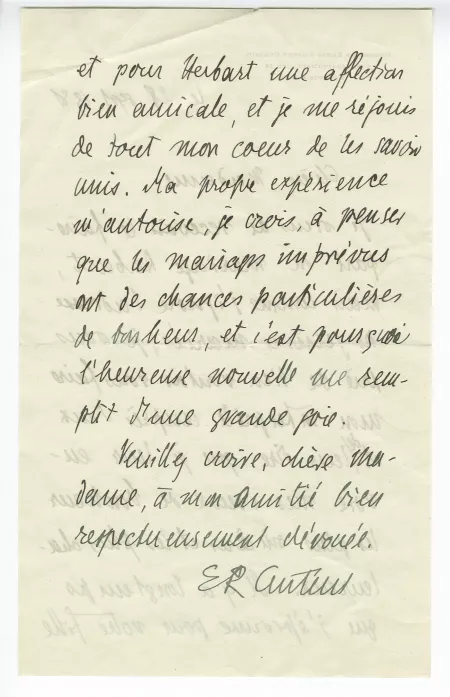 et pour Herbart une affection
bien amicale, et je me réjouis
de tout mon coeur de les savoir
unis. Ma propre expérience
m'autorise, je crois, à penser
que les mariages imprévus
ont des chances particulières
de bonheur, et c'est pourquoi
l'heureuse nouvelle me rem-
plit d'une grande joie.
Veuillez croire, chère Ma-
dame, à mon amitié bien
respectueusement dévouée.
ER Curtius